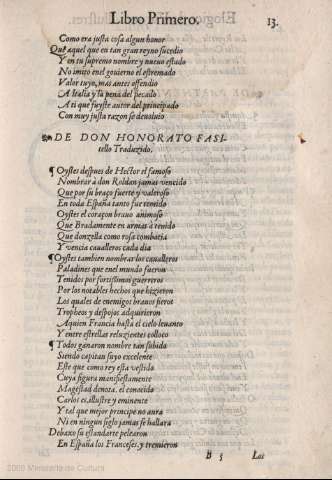 Libro Primero. 13.
Como era justa cosa algun honor
Que aquel que en tan gran reyno sucedio
Y en tu supremo nombre y nueuo estado
No imito enel gouierno el estremado
Valor tuyo, mas antes offendio
A Italia y la pena del peccado
A ti que fuyste autor del principado
Con muy justa razon se deuoluio
DE DON HONORATO FASI-
tello Traduzido.
¶ Oystes despues de Hector el famoso
Nombrar a don Roldan jamas vencido
Que por su braço fuerte y valeroso
En toda España tanto fue temido
Oystes el coraçon brauo animoso
Que Bradamente en armas a tenido
Que donzella como rosa combatia
Y vencia caualleros cada dia
¶ Oystes tambien nombrar los caualleros
Paladines que enel mundo fueron
Tenidos por fortissimos guerreros
Por los notables hechos que hizieron
Los quales de enemigos brauos fieros
Tropheos y despojos adquirieron
Aquien Francia hasta el cielo leuanto
Y entre estrellas reluzientes colloco
¶ Todos ganaron nombre tan subido
Siendo capitan suyo excelente
Este que como rey esta vestido
Cuya figura manifiestamente
Magestad denota, el conocido
Carlos es, illustre y eminente
Y tal que mejor principe no aura
Ni en ningun siglo jamas se hallara
Debaxo su estandarte pelearon
En España los Franceses, y tremieron
B 5 Los
2009 Ministerio de Cultura